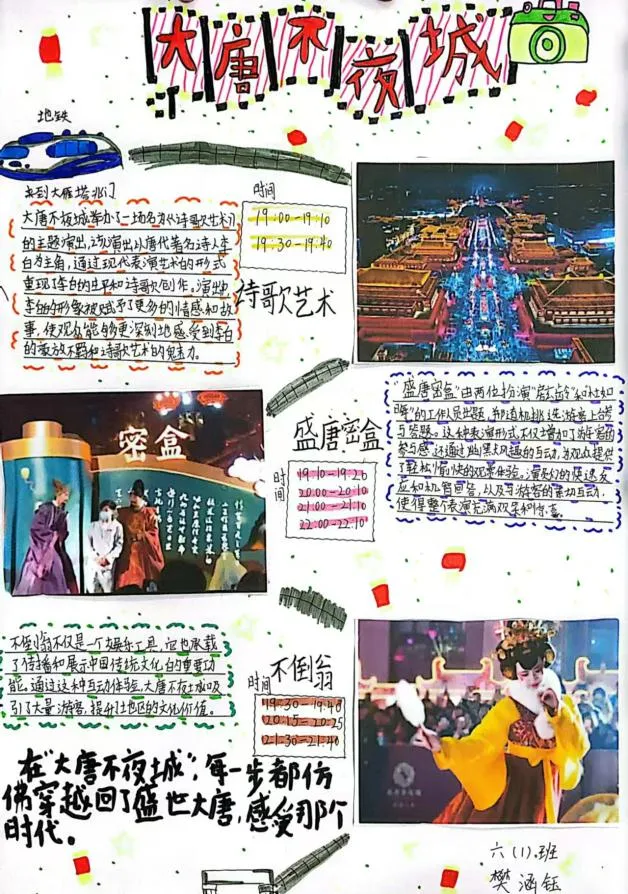 大唐不夜城
地铁
来到大雁塔北门
大唐不夜城举办了一场名为《诗歌艺术》
的主题演出,该演出以唐代著名诗人李
白为主角,通过现代表演艺术的形式
重现了李白的生平和诗歌创作。演出中
李白的形象被赋予了更多的情感和故
事,使观众能够更深刻地感受到李白
的豪放不羁和诗歌艺术的魅力。
时间
19:00-19:10
19:30-19:40
诗歌艺术
密盒
盛唐密盒
时间
19:10-19:20
20:00-20:10
21:00-21:10
22:00-22:10
"盛唐密盒"由两位扮演"房玄龄"和"杜如
晦"的工作人员出题,并随机挑选游客上台参
与答题。这种表演形式不仅增加了游客的
参与感,还通过幽默风趣的互动,为观众提供
了轻松愉快的观赏体验。演员们的快速反
应和机智回答,以及与游客的亲切互动,
使得整个表演充满欢乐和惊喜。
不倒翁不仅是一个娱乐工具,它也承载
了传播和展示中国传统文化的重要功
能。通过这种互动体验,大唐不夜城吸
引了大量游客,提升社地区的文化价值。
不倒翁
时间
19:30-19:40
20:15-20:25
21:30-21:40
在"大唐不夜城",每一步都仿
佛穿越回了盛世大唐,感受那个
时代。
六(1).班
樊涵钰